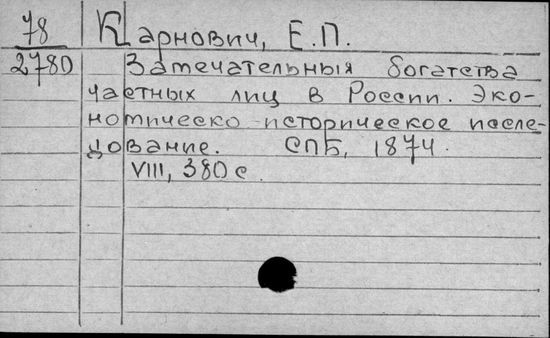 78 Карнович, Е.П.
2780 Замечательныя богатства
частных лиц в России. Эко-
номическо-историческое иссле-
дование. СПБ, 1874.
VIII, 380 с.